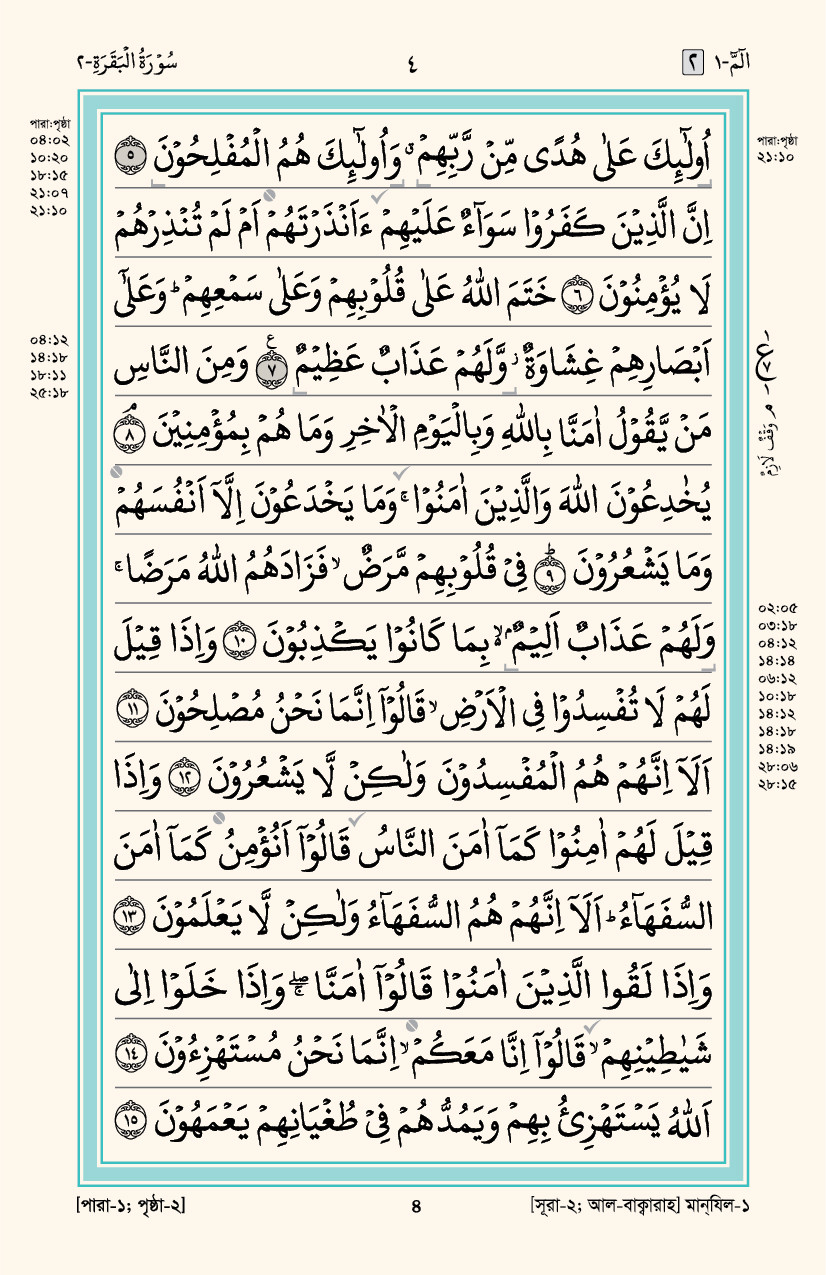 سُوْرَةُ الْبَقَرَةِ-٢
٤
٢ الٓمّٓ-١
اُولٰٓئِكَ عَلٰى هُدًى مِّنْ رَّبِّهِمْ ۙ وَاُولٰٓئِكَ هُمُ الْمُفْلِحُوْنَ ٥
اِنَّ الَّذِيْنَ كَفَرُوْا سَوَآءٌ عَلَيْهِمْ ءَاَنْذَرْتَهُمْ اَمْ لَمْ تُنْذِرْهُمْ
لَا يُؤْمِنُوْنَ ٦ خَتَمَ اللّٰهُ عَلٰى قُلُوْبِهِمْ وَعَلٰى سَمْعِهِمْ ؕ وَعَلٰٓى
اَبْصَارِهِمْ غِشَاوَةٌ ؗ وَّلَهُمْ عَذَابٌ عَظِيْمٌ ٧ ع وَمِنَ النَّاسِ
مَنْ يَّقُوْلُ اٰمَنَّا بِاللّٰهِ وَبِالْيَوْمِ الْاٰخِرِ وَمَا هُمْ بِمُؤْمِنِيْنَ ٨ ۘ
يُخٰدِعُوْنَ اللّٰهَ وَالَّذِيْنَ اٰمَنُوْا ۚ وَمَا يَخْدَعُوْنَ اِلَّاۤ اَنْفُسَهُمْ
وَمَا يَشْعُرُوْنَ ٩ ؕ فِيْ قُلُوْبِهِمْ مَّرَضٌ ۙ فَزَادَهُمُ اللّٰهُ مَرَضًا ۚ
وَلَهُمْ عَذَابٌ اَلِيْمٌۢ ۙ بِمَا كَانُوْا يَكْذِبُوْنَ ١٠ وَاِذَا قِيْلَ
لَهُمْ لَا تُفْسِدُوْا فِى الْاَرْضِ ۙ قَالُوْۤا اِنَّمَا نَحْنُ مُصْلِحُوْنَ ١١
اَلَاۤ اِنَّهُمْ هُمُ الْمُفْسِدُوْنَ وَلٰكِنْ لَّا يَشْعُرُوْنَ ١٢ وَاِذَا
قِيْلَ لَهُمْ اٰمِنُوْا كَمَاۤ اٰمَنَ النَّاسُ قَالُوْۤا اَنُؤْمِنُ كَمَاۤ اٰمَنَ
السُّفَهَآءُ ؕ اَلَاۤ اِنَّهُمْ هُمُ السُّفَهَآءُ وَلٰكِنْ لَّا يَعْلَمُوْنَ ١٣
وَاِذَا لَقُوا الَّذِيْنَ اٰمَنُوْا قَالُوْۤا اٰمَنَّا ۖۚ وَاِذَا خَلَوْا اِلٰى
شَيٰطِيْنِهِمْ ۙ قَالُوْۤا اِنَّا مَعَكُمْ ۙ اِنَّمَا نَحْنُ مُسْتَهْزِءُوْنَ ١٤
اَللّٰهُ يَسْتَهْزِئُ بِهِمْ وَيَمُدُّهُمْ فِيْ طُغْيَانِهِمْ يَعْمَهُوْنَ ١٥
পারা:পৃষ্ঠা
২১:১০
ع
٧
م وَقْفْ لَازِمْ
০২:০৫
০৩:১৮
০৪:১২
১৪:১৪
০৬:১২
১০:১৮
১৪:১২
১৪:১৮
১৪:১৯
২৮:০৬
২৮:১৫
পারা:পৃষ্ঠা
০৪:০২
১০:২০
১৮:১৫
২১:০৭
২১:১০
০৪:১২
১৪:১৮
১৮:১১
২৫:১৮
[পারা-১; পৃষ্ঠা-২]
৪
[সূরা-২; আল-বাক্বারাহ] মান্‌যিল-১